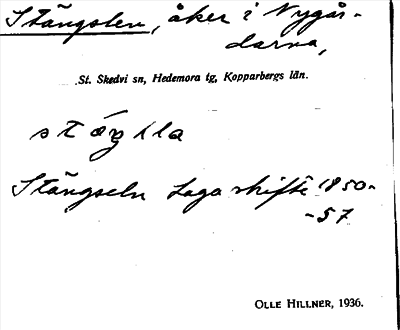 Stängslen, åker i Nygår-
darna,
St. Skedvi sn, Hedemora tg, Kopparbergs län.
Stängseln Laga skifte 1850-
-57
OLLE HILLNER, 1936.